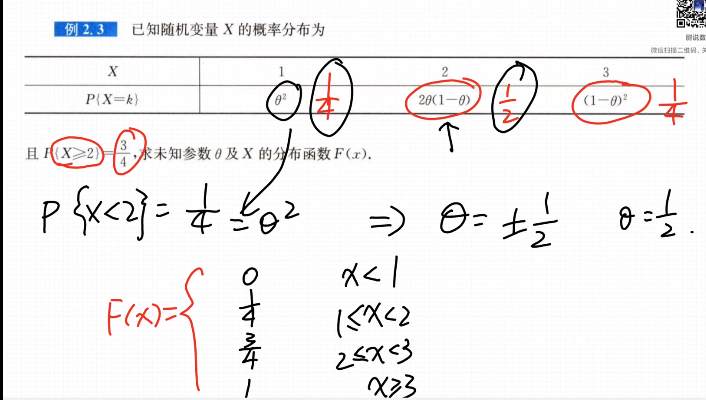 例 2.3 已知随机变量 X 的概率分布为
微信扫描二维码，关
X 1 2 3
P{X=k} θ² 1/4 2θ(1−θ) 1/2 (1−θ)² 1/4
且 P{X≥2}=3/4,求未知参数 θ 及 X 的分布函数 F(x).
P{X<2}=1/4=θ² ⇒ θ=±1/2 θ=1/2.
F(x)={ 0 x<1
1/4 1≤x<2
3/4 2≤x<3
1 x≥3